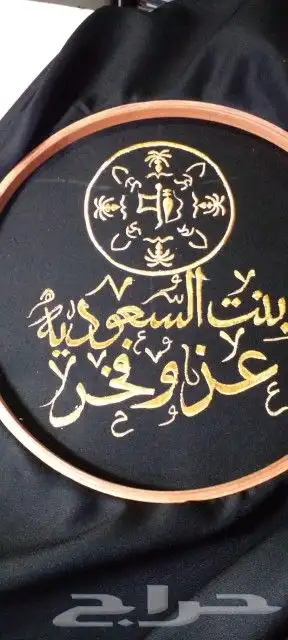 بنت السعوديه
عز وفخر
حراج